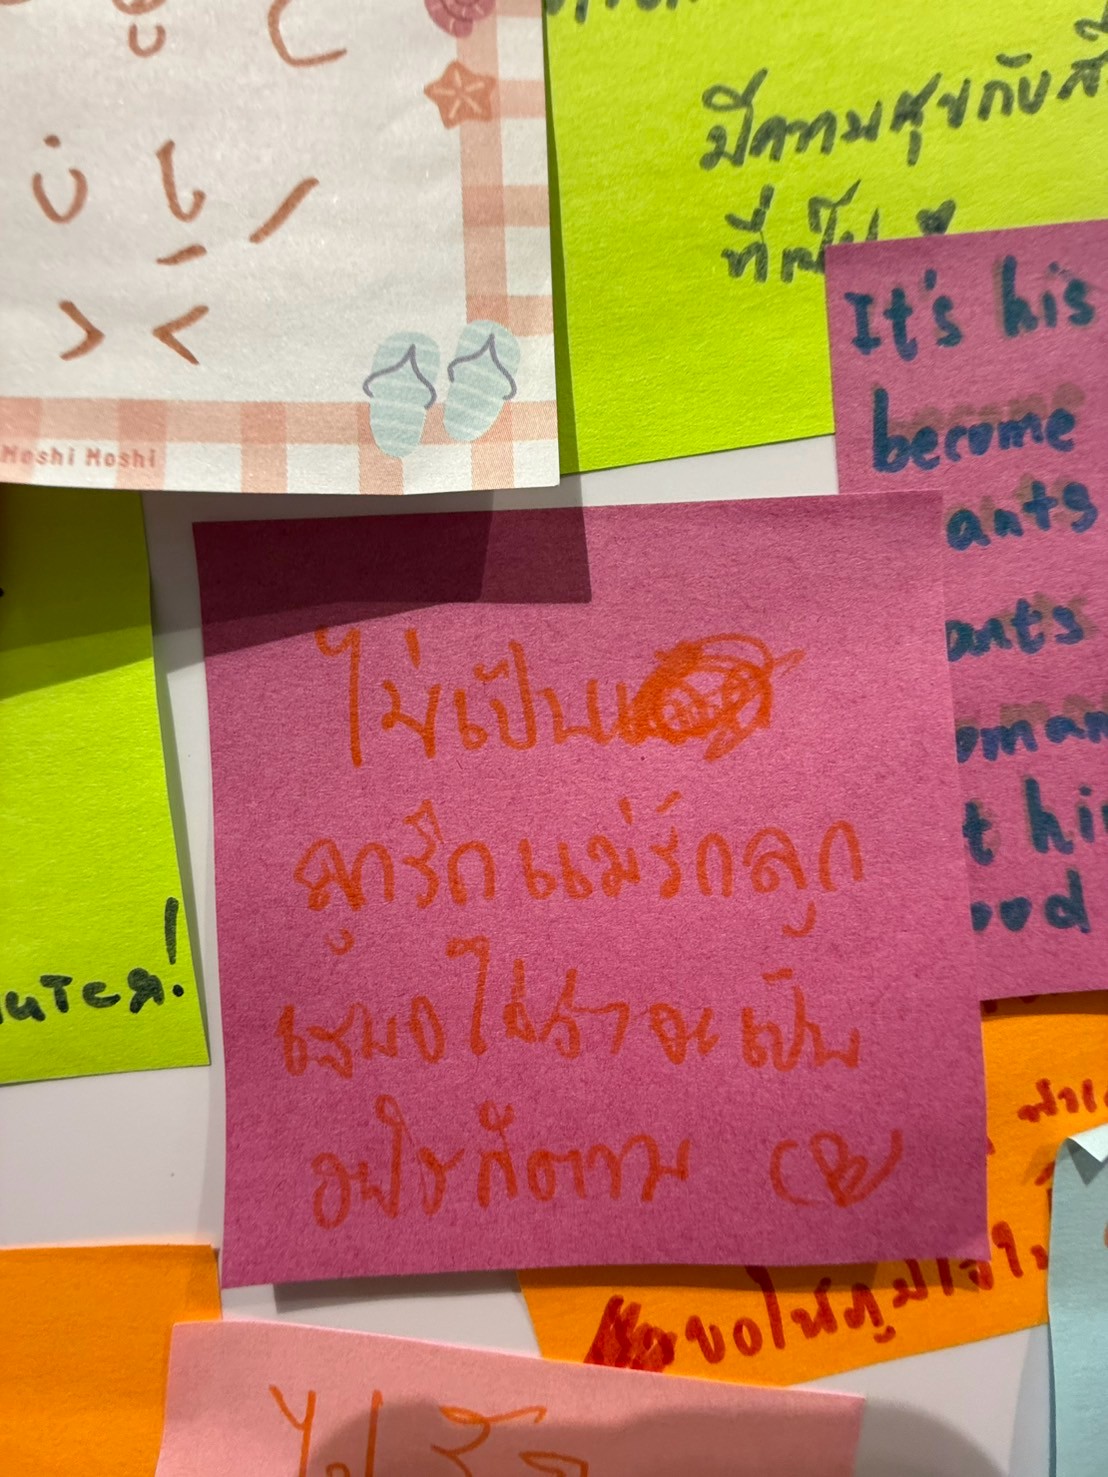 มีความสุขกับสิ่
ที่เป็น ♥
Moshi Moshi
It's his
become
ants
ants
oman
t hi
ood
ไม่เป็น
ลูกรัก แม่รักลูก
เสมอ ไม่ว่า จะ เป็น
อะไร ก็ตาม
ขอให้ภูมิใจใ
> <